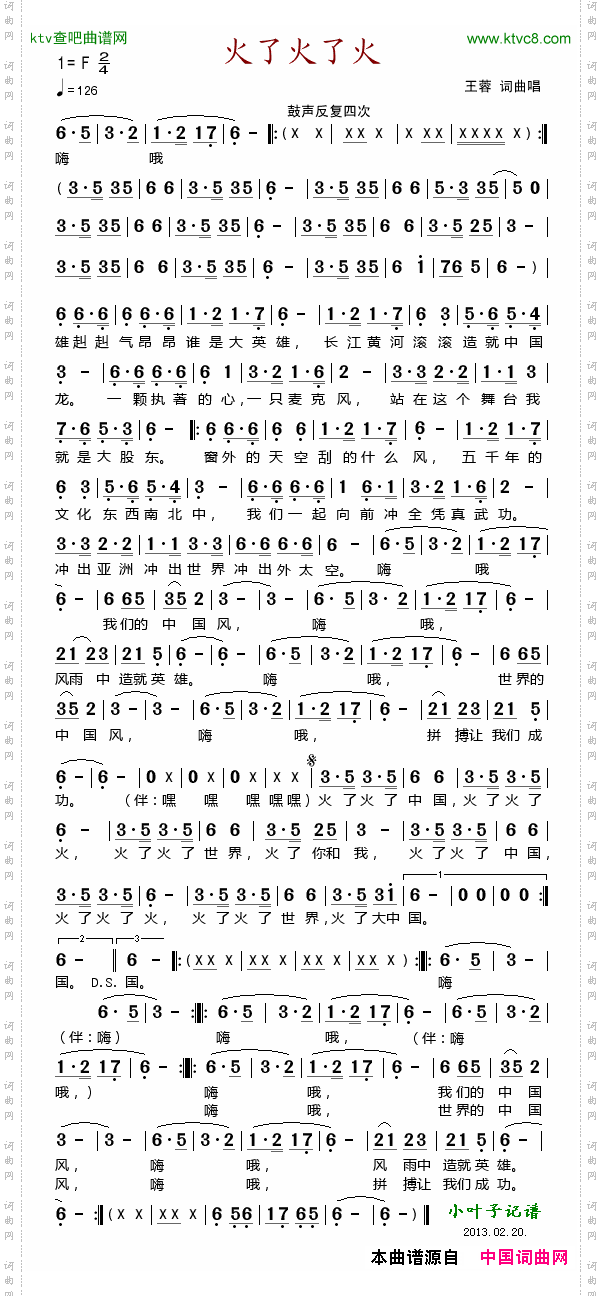 ktv查吧曲谱网
火了火了火
www.ktvc8.com
1= F 2/4
♩=126
王蓉 词曲唱
鼓声反复四次
6·5 | 3·2 | 1·2 17 | 6 - ‖: (X X | XX X | X XX | XXXX X) :‖
嗨 哦
(3·5 35 | 6 6 | 3·5 35 | 6 - | 3·5 35 | 6 6 | 5·3 35 | 5 0
3·5 35 | 6 6 | 3·5 35 | 6 - | 3·5 35 | 6 6 | 3·5 25 | 3 -
3·5 35 | 6 6 | 3·5 35 | 6 - | 3·5 35 | 6 1 | 76 5 | 6 -)
6 6·6 | 6 6·6 | 1·2 1·7 | 6 - | 1·2 1·7 | 6 3 | 5·6 5·4
雄赳赳气昂昂谁是大英雄, 长江黄河滚滚造就中国
3 - | 6·6 6·6 | 6 1 | 3·2 1·6 | 2 - | 3·3 2·2 | 1·1 3
龙。 一颗执著的心,一只麦克风, 站在这个舞台我
7·6 5·3 | 6 - ‖: 6·6 6·6 | 3·6 | 1·2 1·7 | 6 - | 1·2 1·7
就是大股东。 窗外的天空刮的什么风, 五千年的
6 3 | 5·6 5·4 | 3 - | 6·6 6·6 | 1 6·1 | 3·2 1·6 | 2 -
文化东西南北中, 我们一起向前冲全凭真武功。
3·3 2·2 | 1·1 3·3 | 6·6 6·6 | 6 - | 6·5 | 3·2 | 1·2 17
冲出亚洲冲出世界冲出外太空。 嗨 哦
6 - | 6 65 | 35 2 | 3 - | 3 - | 6·5 | 3·2 | 1·2 17 | 6 -
我们的中国风, 嗨 哦,
21 23 | 21 5 | 6 - | 6 - | 6·5 | 3·2 | 1·2 17 | 6 - | 6 65
风雨中造就英雄。 嗨 哦, 世界的
35 2 | 3 - | 3 - | 6·5 | 3·2 | 1·2 17 | 6 - | 21 23 | 21 5
中国风, 嗨 哦, 拼搏让我们成
6 - | 6 - | 0 X | 0 X | 0 X | X X | 3·5 3·5 | 6 6 | 3·5 3·5
功。 (伴:嘿 嘿 嘿嘿嘿)火了火了中国,火了火了
6 - | 3·5 3·5 | 6 6 | 3·5 25 | 3 - | 3·5 3·5 | 6 6
火, 火了火了世界,火了你和我, 火了火了中国,
3·5 3·5 | 6 - | 3·5 3·5 | 6 6 | 3·5 31 | 6 - | 0 0 | 0 0 :‖
火了火了火, 火了火了世界,火了大中国。
6 - ‖ 6 - ‖: (XX X | XX X | XX X | XX X) :‖: 6·5 | 3 -
国。 D.S. 国。 嗨
6·5 | 3 - :‖: 6·5 | 3·2 | 1·2 17 | 6 - | 6·5 | 3·2
(伴:嗨) 嗨 哦, (伴:嗨
1·2 17 | 6 - :‖: 6·5 | 3·2 | 1·2 17 | 6 - | 6 65 | 35 2
哦,) 嗨 哦, 我们的中国
嗨 哦, 世界的中国
3 - | 3 - | 6·5 | 3·2 | 1·2 17 | 6 - | 21 23 | 21 5 | 6 -
风, 嗨 哦, 风雨中造就英雄。
风, 嗨 哦, 拼搏让我们成功。
6 - :‖ (X X | XX X | 6 56 | 17 65 | 6 -) ‖
小叶子记谱
2013.02.20.
本曲谱源自 中国词曲网